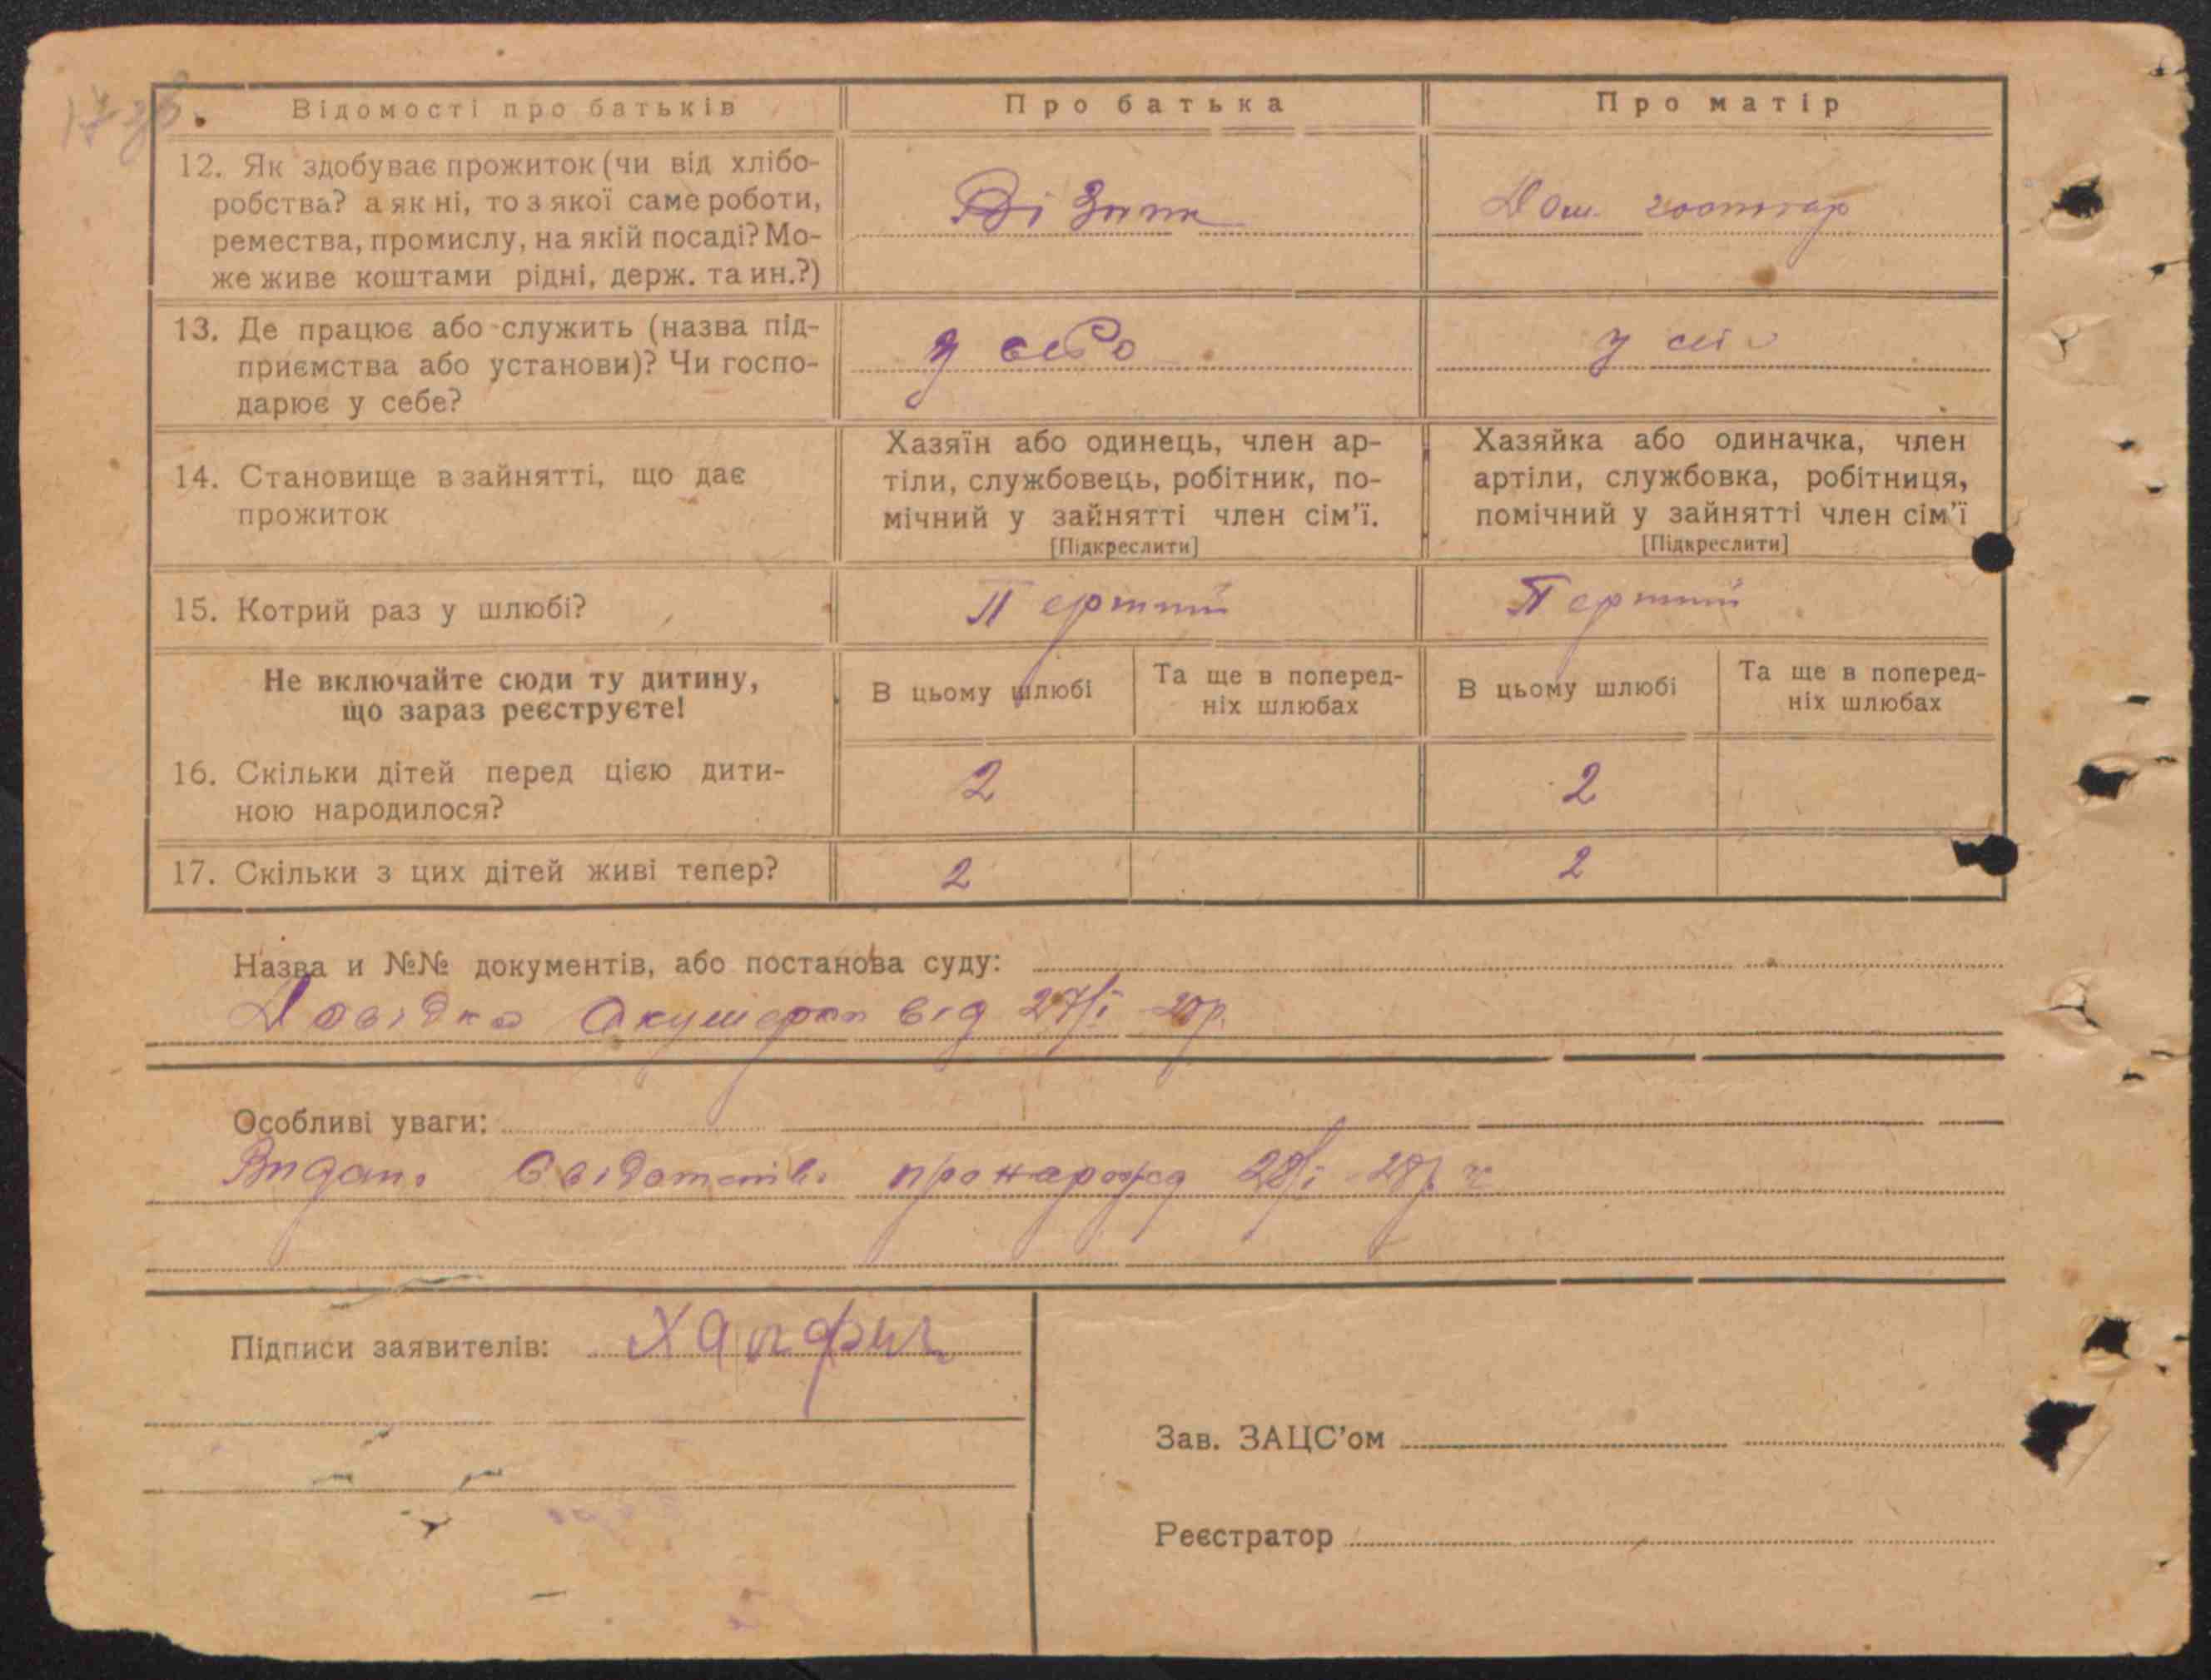 Відомості про батьків
Про батька
Про матір
12. Як здобуває прожиток (чи від хлібо-
робства? а як ні, то з якої саме роботи,
ремества, промислу, на якій посаді? Мо-
же живе коштами рідні, держ. та ин.?)
Дом. господар
13. Де працює або служить (назва під-
приємства або установи)? Чи госпо-
дарює у себе?
у себе
у
14. Становище в зайнятті, що дає
прожиток
Хазяїн або одинець, член ар-
тіли, службовець, робітник, по-
мічний у зайнятті член сім'ї.
[Підкреслити]
Хазяйка або одиначка, член
артіли, службовка, робітниця,
помічний у зайнятті член сім'ї
[Підкреслити]
15. Котрий раз у шлюбі?
Перший
Перший
Не включайте сюди ту дитину,
що зараз реєструєте!
В цьому шлюбі
Та ще в поперед-
ніх шлюбах
В цьому шлюбі
Та ще в поперед-
ніх шлюбах
16. Скільки дітей перед цією дити-
ною народилося?
2
2
17. Скільки з цих дітей живі тепер?
2
2
Назва и №№ документів, або постанова суду:
Довідка Акушерки від 27/I
Особливі уваги:
Видано про народж 28/I 28р
Підписи заявителів:
Зав. ЗАЦС'ом
Реєстратор